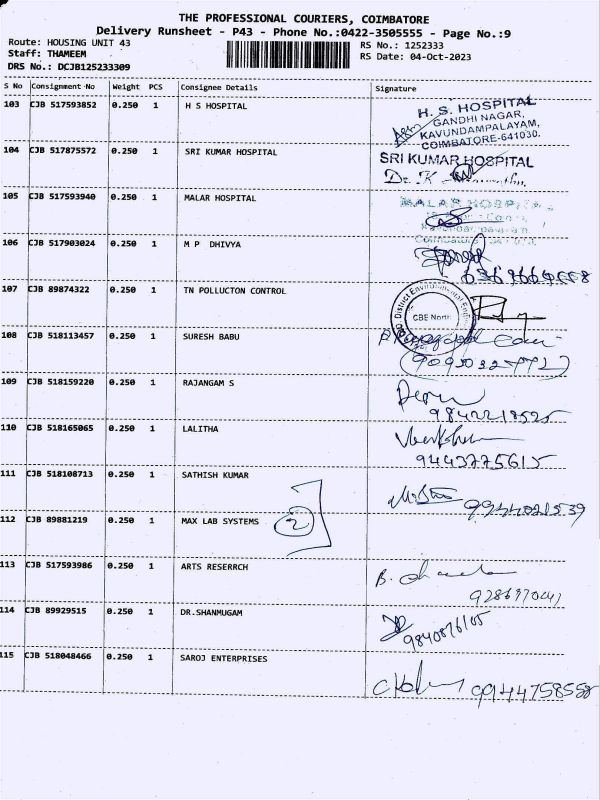 THE PROFESSIONAL COURIERS, COIMBATORE
Delivery Runsheet - P43 - Phone No.:0422-3505555 - Page No.:9
Route: HOUSING UNIT 43 RS No.: 1252333
Staff: THAMEEM RS Date: 04-Oct-2023
DRS No.: DCJB125233309
S No Consignment No Weight PCS Consignee Details Signature
103 CJB 517593852 0.250 1 H S HOSPITAL
H. S. HOSPITAL
GANDHI NAGAR,
KAVUNDAMPALAYAM,
COIMBATORE-641030.
104 CJB 517875572 0.250 1 SRI KUMAR HOSPITAL
SRI KUMAR HOSPITAL
Dr. K
105 CJB 517593940 0.250 1 MALAR HOSPITAL
MALAR HOSPITAL
106 CJB 517903024 0.250 1 M P DHIVYA
107 CJB 89874322 0.250 1 TN POLLUCTON CONTROL
District Environmental
CBE North
108 CJB 518113457 0.250 1 SURESH BABU
109 CJB 518159220 0.250 1 RAJANGAM S
9842218525
110 CJB 518165065 0.250 1 LALITHA
9443775615
111 CJB 518108713 0.250 1 SATHISH KUMAR
9944021539
112 CJB 89881219 0.250 1 MAX LAB SYSTEMS
2
113 CJB 517593986 0.250 1 ARTS RESERRCH
B.
114 CJB 89929515 0.250 1 DR.SHANMUGAM
9840876105
115 CJB 518048466 0.250 1 SAROJ ENTERPRISES
9944758558